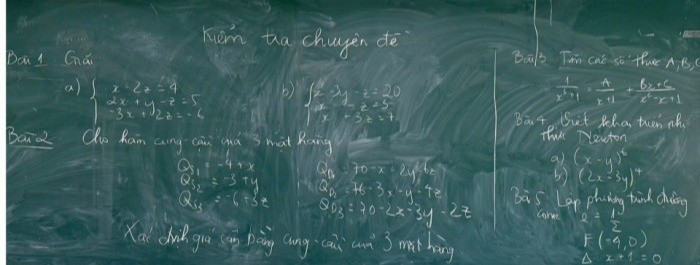 Kiểm tra chuyên đề
Bài 1 Giải
a) { x - 2z = 4
2x + y - z = 5
-3x + 2z = -6
b) { x - 3y - z = 20
x - z = 5
x - 3z = 7
Bài 2 Cho hàm cung - cầu của 3 mặt hàng
Qs1 = -4 + x
Qs2 = -3 + y
Qs3 = -6 + 3z
QD1 = 70 - x - 2y - 6z
QD2 = 76 - 3x - y - 4z
QD3 = 70 - 2x - 3y - 2z
Xác định giá cân bằng cung - cầu của 3 mặt hàng
Bài 3 Tìm các số thực A, B, C
1/(x³+1) = A/(x+1) + (Bx+C)/(x²-x+1)
Bài 4 Viết khai triển nhị
thức Newton
a) (x - y)⁶
b) (2x - 3y)⁴
Bài 5 Lập phương trình đường
conic e = 1/2
F(-4, 0)
Δ x + 1 = 0